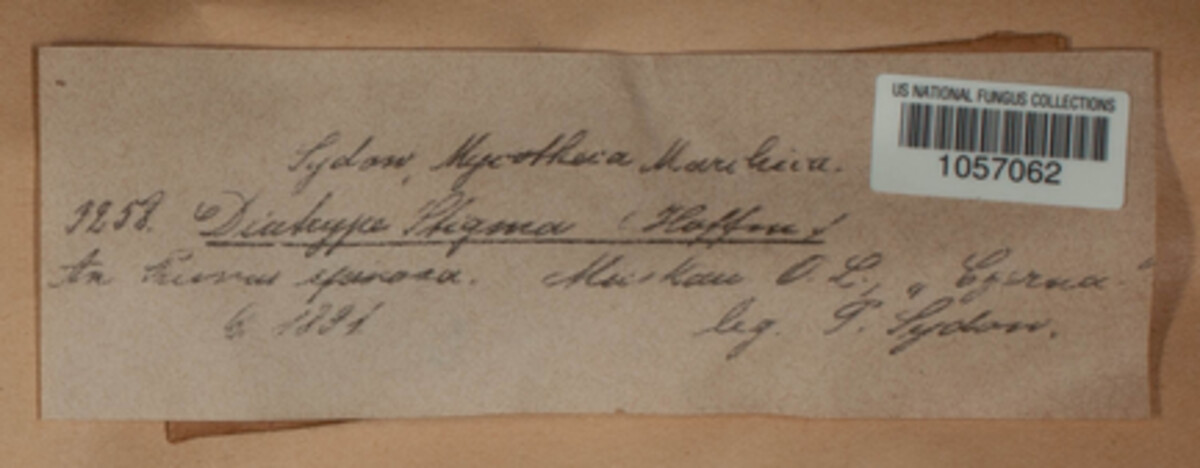 US NATIONAL FUNGUS COLLECTIONS
1057062
Sydow, Mycotheca Marchica.
3258. Diatrype Stigma (Hoffm.)
An Prunus spinosa. Muskau O. L., „Czerna“
6. 1891. leg. P. Sydow.